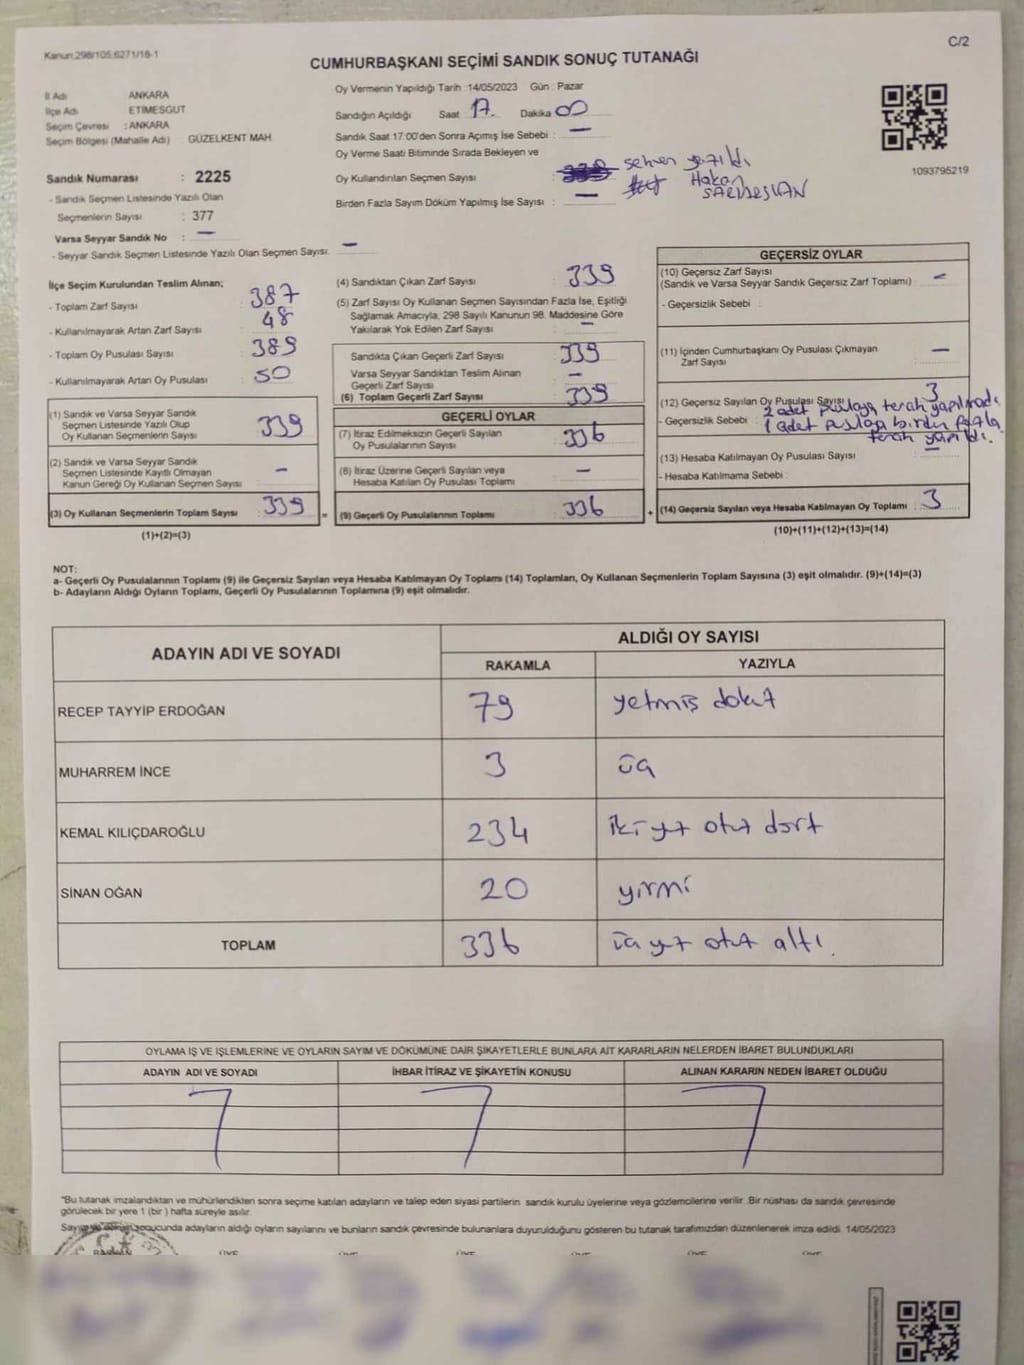 Kanun:298/105,6271/18-1
C/2
CUMHURBAŞKANI SEÇİMİ SANDIK SONUÇ TUTANAĞI
İl Adı ANKARA
İlçe Adı ETİMESGUT
Seçim Çevresi : ANKARA
Seçim Bölgesi (Mahalle Adı) GÜZELKENT MAH.
Sandık Numarası : 2225
- Sandık Seçmen Listesinde Yazılı Olan
Seçmenlerin Sayısı : 377
Varsa Seyyar Sandık No : —
- Seyyar Sandık Seçmen Listesinde Yazılı Olan Seçmen Sayısı: —
Oy Vermenin Yapıldığı Tarih :14/05/2023 Gün : Pazar
Sandığın Açıldığı Saat 17 Dakika 00
Sandık Saat 17:00'den Sonra Açımış İse Sebebi : —
Oy Verme Saati Bitiminde Sırada Bekleyen ve
Oy Kullandırılan Seçmen Sayısı :
yazıldı
Hakan
Birden Fazla Sayım Döküm Yapılmış İse Sayısı : —
1093795219
İlçe Seçim Kurulundan Teslim Alınan;
- Toplam Zarf Sayısı 387
- Kullanılmayarak Artan Zarf Sayısı 48
- Toplam Oy Pusulası Sayısı 389
- Kullanılmayarak Artan Oy Pusulası 50
(1) Sandık ve Varsa Seyyar Sandık
Seçmen Listesinde Yazılı Olup
Oy Kullanan Seçmenlerin Sayısı 339
(2) Sandık ve Varsa Seyyar Sandık
Seçmen Listesinde Kayıtlı Olmayan
Kanun Gereği Oy Kullanan Seçmen Sayısı —
(3) Oy Kullanan Seçmenlerin Toplam Sayısı : 339
(1)+(2)=(3)
(4) Sandıktan Çıkan Zarf Sayısı : 339
(5) Zarf Sayısı Oy Kullanan Seçmen Sayısından Fazla İse, Eşitliği
Sağlamak Amacıyla, 298 Sayılı Kanunun 98. Maddesine Göre
Yakılarak Yok Edilen Zarf Sayısı —
Sandıkta Çıkan Geçerli Zarf Sayısı : 339
Varsa Seyyar Sandıktan Teslim Alınan
Geçerli Zarf Sayısı —
(6) Toplam Geçerli Zarf Sayısı : 339
GEÇERLİ OYLAR
(7) İtiraz Edilmeksizin Geçerli Sayılan
Oy Pusulası Sayısı 336
(8) İtiraz Üzerine Geçerli Sayılan veya
Hesaba Katılan Oy Pusulası Toplamı —
= (9) Geçerli Oy Pusulalarının Toplamı : 336 +
GEÇERSİZ OYLAR
(10) Geçersiz Zarf Sayısı
(Sandık ve Varsa Seyyar Sandık Geçersiz Zarf Toplamı) : —
- Geçersizlik Sebebi :
(11) İçinden Cumhurbaşkanı Oy Pusulası Çıkmayan
Zarf Sayısı : —
(12) Geçersiz Sayılan Oy Pusulası Sayısı 3
- Geçersizlik Sebebi : 2 adet pusulaya
1 adet pusulaya birden fazla
yapıldı.
(13) Hesaba Katılmayan Oy Pusulası Sayısı : —
- Hesaba Katılmama Sebebi :
(14) Geçersiz Sayılan veya Hesaba Katılmayan Oy Toplamı : 3
(10)+(11)+(12)+(13)=(14)
NOT:
a- Geçerli Oy Pusulalarının Toplamı (9) ile Geçersiz Sayılan veya Hesaba Katılmayan Oy Toplamı (14) Toplamları, Oy Kullanan Seçmenlerin Toplam Sayısına (3) eşit olmalıdır. (9)+(14)=(3)
b- Adayların Aldığı Oyların Toplamı, Geçerli Oy Pusulalarının Toplamına (9) eşit olmalıdır.
ADAYIN ADI VE SOYADI ALDIĞI OY SAYISI
RAKAMLA YAZIYLA
RECEP TAYYİP ERDOĞAN 79 yetmiş dokuz
MUHARREM İNCE 3 üç
KEMAL KILIÇDAROĞLU 234 iki yüz otuz dört
SİNAN OĞAN 20 yirmi
TOPLAM 336 üç yüz otuz altı.
OYLAMA İŞ VE İŞLEMLERİNE VE OYLARIN SAYIM VE DÖKÜMÜNE DAİR ŞİKAYETLERLE BUNLARA AİT KARARLARIN NELERDEN İBARET BULUNDUKLARI
ADAYIN ADI VE SOYADI İHBAR İTİRAZ VE ŞİKAYETİN KONUSU ALINAN KARARIN NEDEN İBARET OLDUĞU
"Bu tutanak imzalandıktan ve mühürlendikten sonra seçime katılan adayların ve talep eden siyasi partilerin sandık kurulu üyelerine veya gözlemcilerine verilir. Bir nüshası da sandık çevresinde
görülecek bir yere 1 (bir ) hafta süreyle asılır.
sonucunda adayların aldığı oyların sayılarını ve bunların sandık çevresinde bulunanlara duyurulduğunu gösteren bu tutanak tarafımızdan düzenlenerek imza edildi. 14/05/2023
BAŞKAN ÜYE ÜYE ÜYE ÜYE ÜYE ÜYE